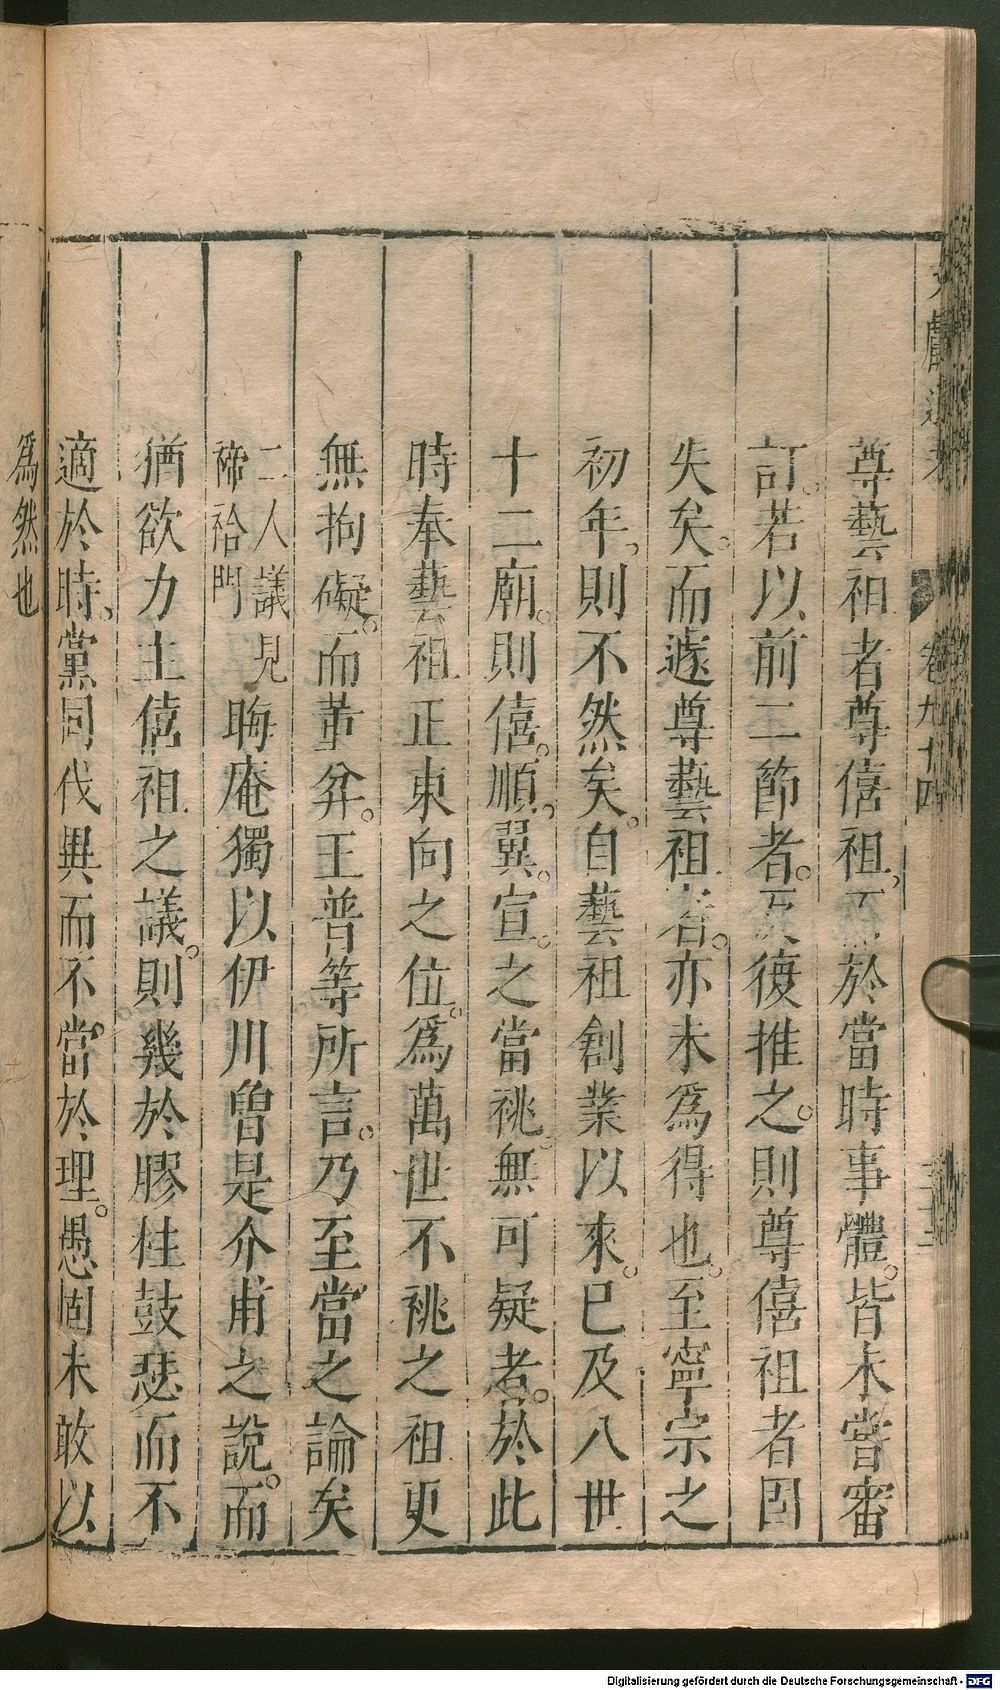 尊藝祖者尊僖祖於當時事體皆未嘗審
訂若以前二節者反復推之則尊僖祖者固
失矣而遽尊藝祖者亦未爲得也至寧宗之
初年則不然矣自藝祖創業以來已及八世
十二廟則僖順翼宣之當祧無可疑者於此
時奉藝祖正東向之位爲萬世不祧之祖更
無拘礙而董弅王普等所言乃至當之論矣
二人議見
禘祫門
晦庵獨以伊川曾是介甫之說而
猶欲力主僖祖之議則幾於膠柱鼓瑟而不
適於時黨同伐異而不當於理愚固未敢以
爲然也
卷九十四
Digitalisierung gefördert durch die Deutsche Forschungsgemeinschaft - DFG